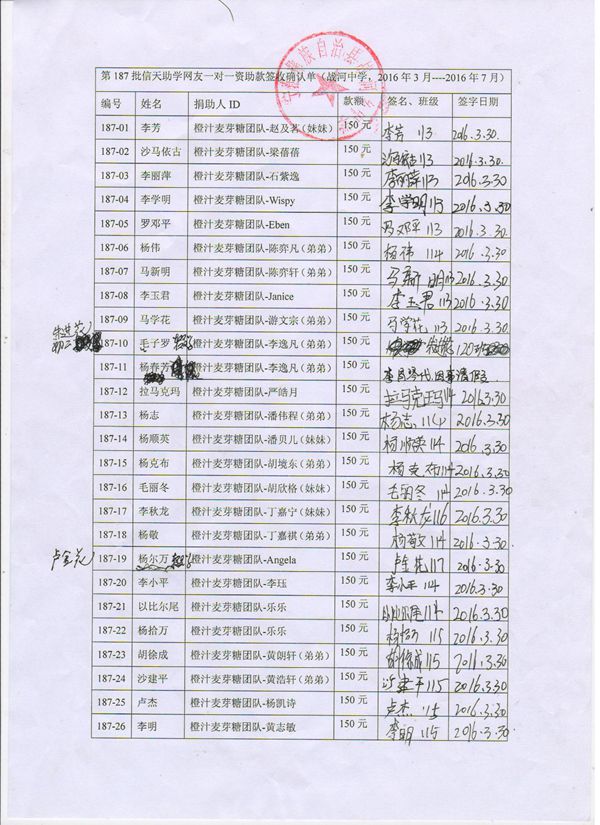 第187批信天助学网友一对一资助款签收确认单（战河中学，2016年3月----2016年7月）
编号 姓名 捐助人ID 款额 签名、班级 签字日期
187-01 李芳 橙汁麦芽糖团队-赵及茗（妹妹） 150元 李芳 113 2016.3.30.
187-02 沙马依古 橙汁麦芽糖团队-梁蓓蓓 150元 113 2016.3.30.
187-03 李丽萍 橙汁麦芽糖团队-石紫逸 150元 李丽萍 113 2016.3.30
187-04 李学明 橙汁麦芽糖团队-Wispy 150元 李学明 113 2016.3.30
187-05 罗邓平 橙汁麦芽糖团队-Eben 150元 邓平 113 2016.3.30.
187-06 杨伟 橙汁麦芽糖团队-陈弈凡（弟弟） 150元 杨伟 114 2016.3.30.
187-07 马新明 橙汁麦芽糖团队-陈弈轩（弟弟） 150元 马新明 113 2016.3.30
187-08 李玉君 橙汁麦芽糖团队-Janice 150元 李玉君 113 2016.3.30
187-09 马学花 橙汁麦芽糖团队-游文宗（弟弟） 150元 马学花 113 2016.3.30
187-10 毛子罗 橙汁麦芽糖团队-李逸凡（弟弟） 150元 120班
187-11 杨春芳 橙汁麦芽糖团队-李逸凡（弟弟） 150元
187-12 拉马克玛 橙汁麦芽糖团队-严皓月 150元 拉马克玛 114 2016.3.30
187-13 杨志 橙汁麦芽糖团队-潘伟程（弟弟） 150元 杨志 114 2016.3.30.
187-14 杨顺英 橙汁麦芽糖团队-潘贝儿（妹妹） 150元 杨顺英 114 2016.3.30.
187-15 杨克布 橙汁麦芽糖团队-胡境东（弟弟） 150元 杨克布 114 2016.3.30.
187-16 毛丽冬 橙汁麦芽糖团队-胡欣格（妹妹） 150元 毛丽冬 114 2016.3.30.
187-17 李秋龙 橙汁麦芽糖团队-丁嘉宁（妹妹） 150元 李秋龙 116 2016.3.30
187-18 杨敬 橙汁麦芽糖团队-丁嘉祺（弟弟） 150元 杨敬 114 2016.3.30.
卢金花 187-19 杨尔万 橙汁麦芽糖团队-Angela 150元 卢金花 117 2016.3.30
187-20 李小平 橙汁麦芽糖团队-李珏 150元 李小平 114 2016.3.30
187-21 以比尔尾 橙汁麦芽糖团队-乐乐 150元 114 2016.3.30
187-22 杨拾万 橙汁麦芽糖团队-乐乐 150元 杨拾万 115 2016.3.30
187-23 胡徐成 橙汁麦芽糖团队-黄朗轩（弟弟） 150元 胡徐成 115 2016.3.30
187-24 沙建平 橙汁麦芽糖团队-黄浩轩（弟弟） 150元 沙建平 115 2016.3.30.
187-25 卢杰 橙汁麦芽糖团队-杨凯诗 150元 卢杰 115 2016.3.30
187-26 李明 橙汁麦芽糖团队-黄志敏 150元 李明 115 2016.3.30.